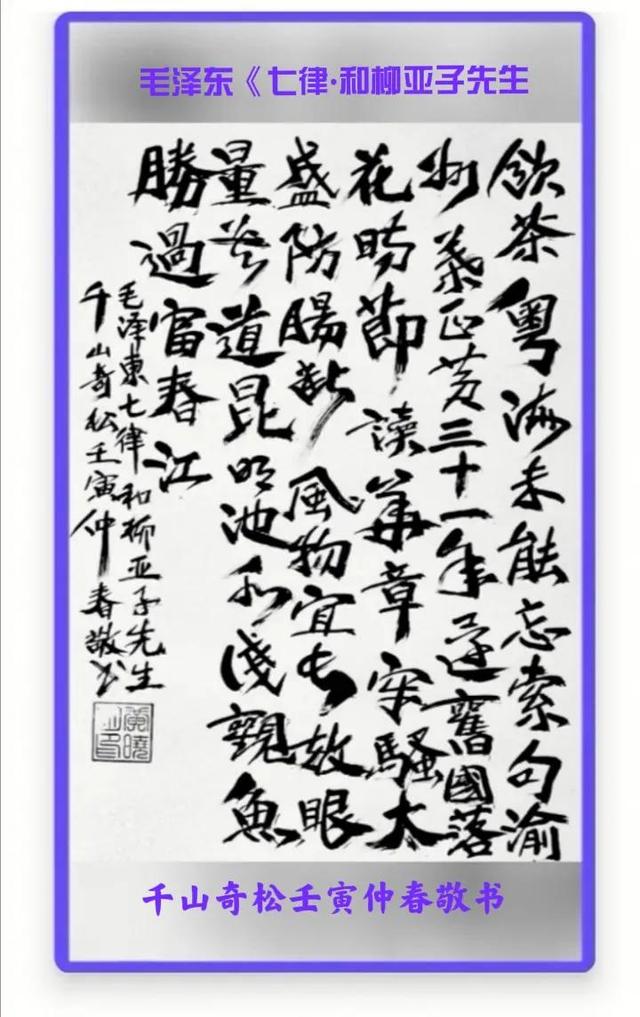 毛泽东《七律·和柳亚子先生
飲茶粤海未能忘索句渝
州葉正黄三十一年還舊國落
花時節讀華章牢騷太
盛防腸斷風物宜長放眼
量莫道昆明池水淺觀魚
勝過富春江
毛泽東七律和柳亚子先生
千山奇松壬寅仲春敬书
千山奇松壬寅仲春敬书